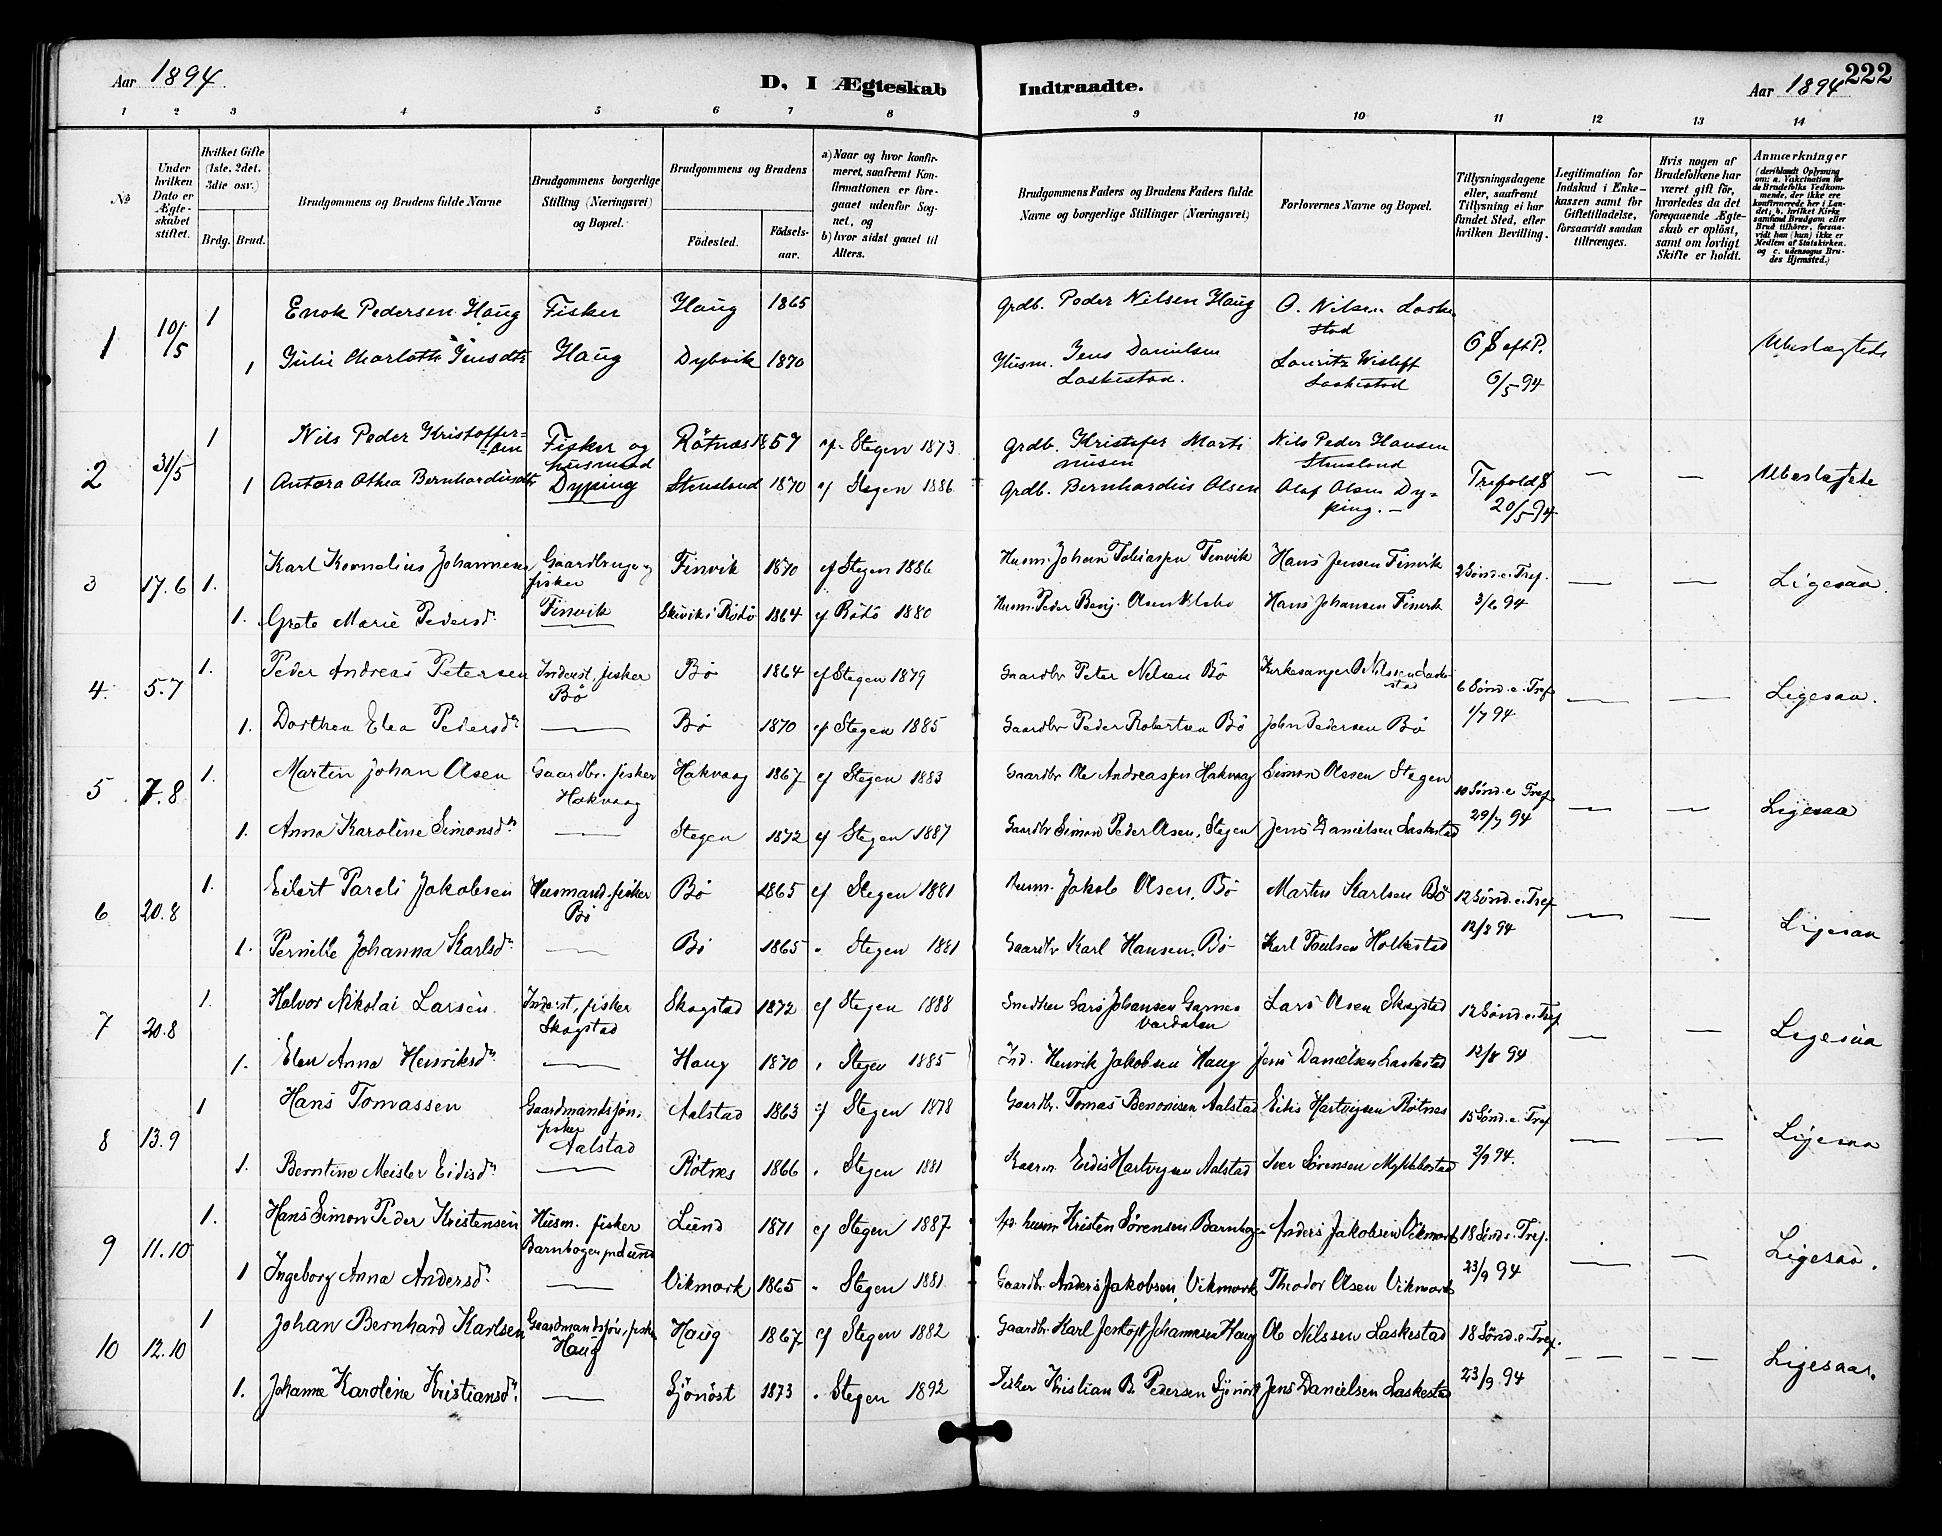 Aar 1894.
D, I Ægteskab
Indtraadte.
Aar 1894
222
1 2 3 4 5 6 7 8 9 10 11 12 13 14
No
Under hvilken Dato er Ægteskabet stiftet.
Hvilket Gifte (1ste, 2det, 3die osv.)
Brdg. Brud.
Brudgommens og Brudens fulde Navne
Brudgommens borgerlige Stilling (Næringsvei) og Bopæl.
Brudgommens og Brudens
Fødested.
Fødsels-aar.
a) Naar og hvor konfirmeret, saafremt Konfirmationen er foregaaet udenfor Sognet, og
b) hvor sidst gaaet til Alters.
Brudgommens Faders og Brudens Faders fulde Navne og borgerlige Stillinger (Næringsvei)
Forlovernes Navne og Bopæl.
Tillysningsdagene eller, saafremt Tillysning ei har fundet Sted, efter hvilken Bevilling.
Legitimation for Indskud i Enkekassen samt for Giftetilladelse, forsaavidt saadan tiltrænges.
Hvis nogen af Brudefolkene har været gift før, hvorledes da det foregaaende Ægteskab er opløst, samt om lovligt Skifte er holdt.
Anmærkninger (deriblandt Oplysning om: a. Vakcination for de Brudefolks Vedkommende, der ikke ere konfirmerede her i Landet; b. hvilket Kirkesamfund Brudgom eller Brud tilhører, forsaavidt han (hun) ikke er Medlem af Statskirken. og c. udensogns Brudes Hjemsted.)
1 10/5 1 Enok Pedersen Haug Fisker Haug 1865 Grdb. Peder Nilsen Haug O. Nilsen Laskestad
1 Julie Charlotte Jensdtr Haug Dybvik 1870 Husm. Jens Danielsen Laskestad. Lauritz Wisløff Laskestad 6 S eft P. 6/5 94 Ubeslægtede
2 31/5 1 Nils Peder Kristoffersen Fisker og husmand Rötnæs 1857 cf. Stegen 1873 Grdb. Kristofer Martinusen Nils Peder Hansen Stensland
1 Antora Othea Bernhardusdtr Dyping Stensland 1870 cf Stegen 1886 Grdb. Bernhardus Olsen Olaf Olsen Dyping. — Trefold S 20/5 94 — — Ubeslegtede
3 17.6 1. Karl Kornelius Johannesen Gaardbruger og fisker Finvik 1870 cf Stegen 1886 Husm. Johan Tobiassen Finvik Hans Jensen Finvik 2 Sønd. e. Tref.
1. Grete Marie Pedersdr. Finvik i Bodö 1864 cf Bodö 1880 Husm. Peder Benj. Olsen Hans Johansen Finvik 3/6 94 — — Ligesaa.
4. 5.7 1. Peder Andreas Petersen Inderst, fisker Bö Bö 1864 cf Stegen 1879 Gaardbr Peter Nilsen Bö Kirkesanger O Nilssen Laskestad 6 Sønd. e. Tref
1. Dorthea Elea Pedersdr — Bö 1870 cf Stegen 1885 Gaardbr Peder Robertsen Bö John Pedersen Bö 1/7 94 — — Ligesaa.
5 7.8 1. Martin Johan Olsen Gaardbr. fisker Hakvaag Hakvaag 1867 cf Stegen 1883 Gaardbr Ole Andreassen Hakvaag Simon Olssen Stegen 10 Sønd. e Tref
1. Anna Karoline Simonsdr — Stegen 1872 cf Stegen 1887 Gaardbr Simon Peder Olsen, Stegen Jens Danielsen Laskestad 29/7 94 — — Ligesaa
6 20.8 1. Eilert Pareli Jakobsen Husmand, fisker Bö Bö 1865 cf Stegen 1881 Husm. Jakob Olsen, Bö Martin Karlsen Bö 12 Sønd. e. Tref
1. Pernille Johanna Karlsdr — Bö 1865 " Stegen 1881 Gaardbr Karl Hansen, Bö Karl Poulsen Holkestad 12/8 94 — — Ligesaa
7 20.8 1. Halvor Nikolai Larsen Inderst, fisker Skogstad Skogstad 1872 cf Stegen 1888 Snedker Lars Johansen Garnes Værdalen Lars Olsen Skogstad 12 Sønd. e. Tref
1. Elen Anna Henriksdr — Haug 1870 " Stegen 1885 Ind. Henrik Jakobsen Haug Jens Danielsen Laskestad 12/8 94 — — Ligesaa
8 13.9 1 Hans Tomassen Gaardmandssøn, fisker Aalstad Aalstad 1863 cf Stegen 1878 Gaardbr. Tomas Benonisen Aalstad Eidis Hartvigsen Røtnes 15 Sønd. e. Tref
1. Berntine Meisler Eidisdr — Røtnes 1866 " Stegen 1881 Eidis Hartvigsen Aalstad Iver Sørensen Myklebostad 2/9 94. — — Ligesaa
9 11.10 1. Hans Simon Peder Kristensen Husm. fisker Barnbogen pr Lund Lund 1871 cf Stegen 1887 husm Kristen Sørensen Barnbogen Anders Jakobsen Vikmark 18 Sønd e. Tref.
1 Ingeborg Anna Andersdr — Vikmark 1865 " Stegen 1881 Gaardbr. Anders Jakobsen, Vikmark Theodor Olsen Vikmark 23/9 94 — — Ligesaa.
10 12.10 1 Johan Bernhard Karlsen Gaardmandssøn, fisker Haug Haug 1867 cf Stegen 1882 Gaardbr. Karl Johannesen Haug Ole Nilssen Laskestad 18 Sønd. e. Tref.
1. Johanna Karoline Kristiansdr. — Sjönöst 1873 " Stegen 1892 Fisker Kristian B. Pedersen Jens Danielsen Laskestad 23/9 94 — — — — Ligesaa.